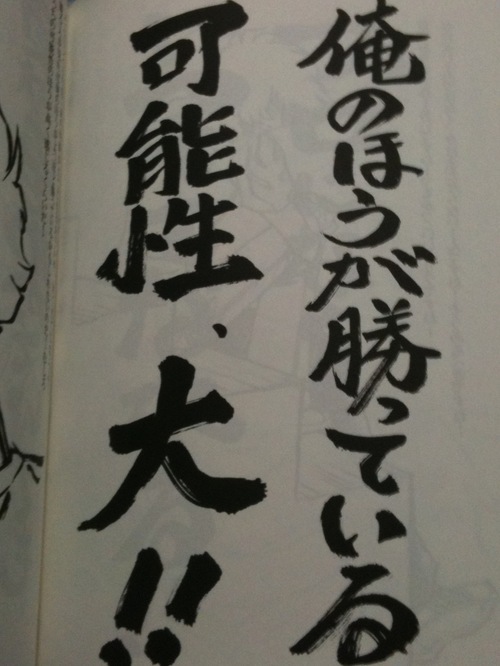 俺のほうが勝っている
可能性、大!!